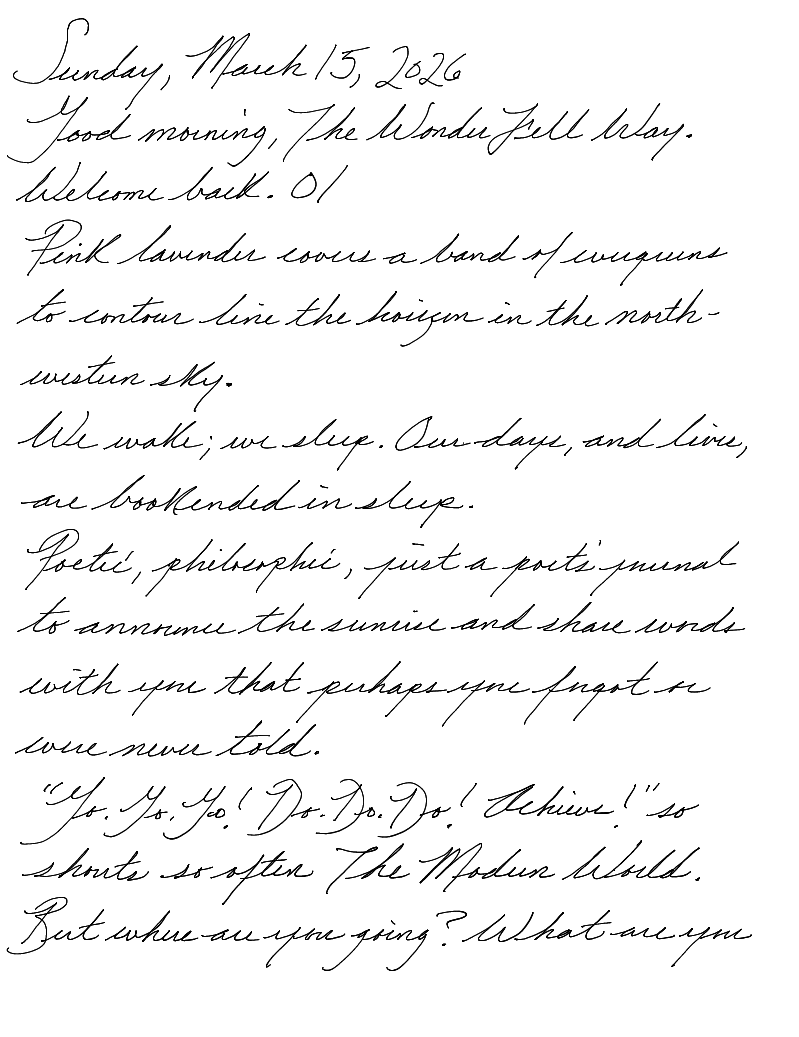 Sunday, March 15, 2026
Good morning, The Wonder Fell Way.
Welcome back. 01
Pink lavender covers a band of evergreens
to contour line the horizon in the north-
western sky.
We wake; we sleep. Our days, and lives,
are bookended in sleep.
Poetic, philosophic, just a poet's journal
to announce the sunrise and share words
with you that perhaps you forgot or
were never told.
"Go. Go. Go! Do. Do. Do! Achieve!" so
shouts so often The Modern World.
But where are you going? What are you